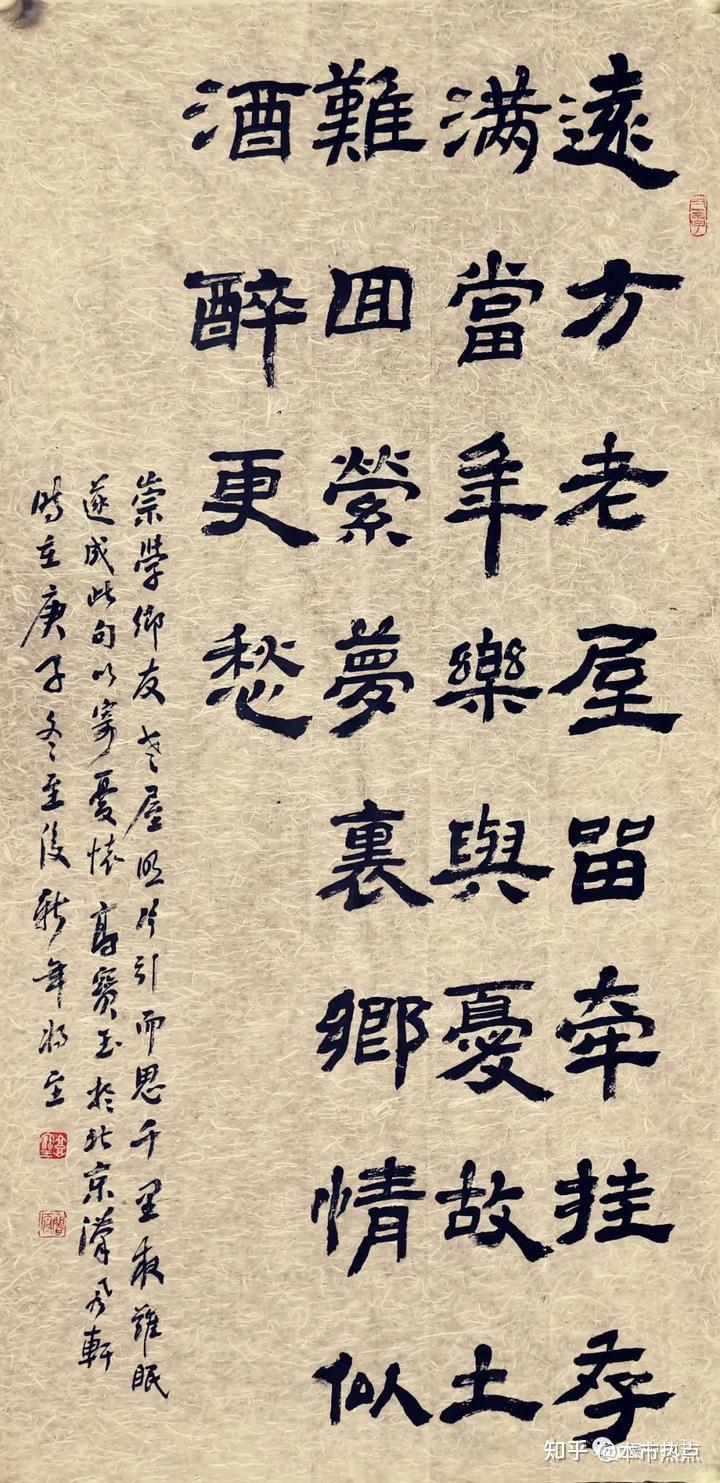 遠方老屋留牽挂存
满當年樂與憂故土
難回縈夢裏鄉情似
酒醉更愁
崇學鄉友老屋照片引而思千里夜難眠
遂成此句以寄憂懷高寶玉於北京漢風軒
時在庚子冬至後新年将至
知乎 @本市热点